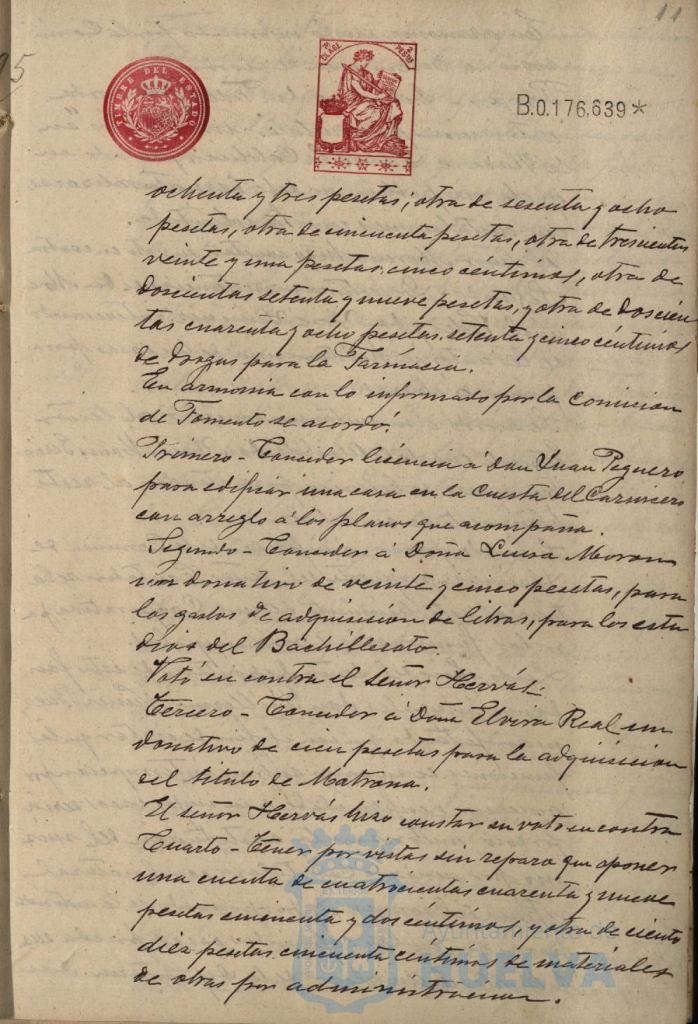 11
95
TIMBRE DEL ESTADO
7ª CLASE
PESETAS
B.0.176,639*
ochenta y tres pesetas; otra de sesenta y ocho
pesetas, otra de cincuenta pesetas, otra de trescientas
veinte y una pesetas cinco céntimos, otra de
doscientas setenta y nueve pesetas, y otra de doscien
tas cuarenta y ocho pesetas, setenta y cinco céntimos
de drogas para la Farmacia.
En armonia con lo informado por la Comision
de Fomento se acordó.
Primero - Conceder licencia á Don Juan Peguero
para edificar una casa en la Cuesta del Carnicero
con arreglo á los planos que acompaña.
Segundo - Conceder á Doña Luisa Moran
un donativo de veinte y cinco pesetas, para
los gastos de adquisicion de libros, para los estu
dios del Bachillerato.
Votó en contra el señor Hervás.
Tercero - Conceder á Doña Elvira Real un
donativo de cien pesetas para la adquisicion
del titulo de Matrona.
El señor Hervás hizo constar su voto en contra
Cuarto - Tener por vistas sin reparo que oponer
una cuenta de cuatrocientas cuarenta y nueve
pesetas cincuenta y dos céntimos, y otra de ciento
diez pesetas cincuenta céntimos de materiales
de obras por administracion.
HUELVA